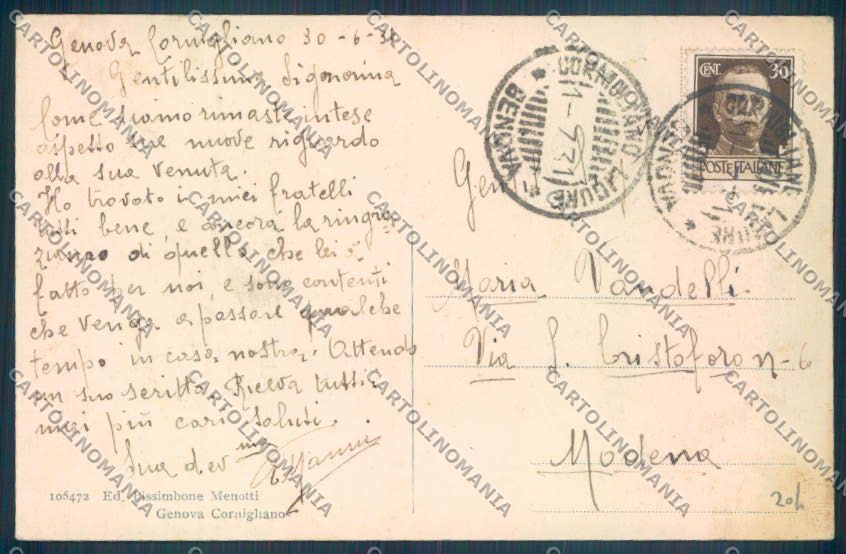 Genova Cornigliano 30-6-31
Gentilissima Signorina
Come siamo rimaste intese
aspetto sue nuove riguardo
alla sua venuta.
Ho trovato i miei fratelli
tutti bene, e ancora la ringra-
ziamo di quello che lei à
fatto per noi, e sono contenti
che venga a passare qualche
tempo in casa nostra. Attendo
un suo scritto. Riceva tutti i
miei più cari saluti.
Sua dev ma
106472 Ed. Bissimbone Menotti
Genova Cornigliano
CORNIGLIANO LIGURE
GENOVA
1-7.31
CENT. 30
POSTE ITALIANE
Gen
Maria Vandelli
Via S. Cristoforo n-6
Modena
20h
CARTOLINOMANIA